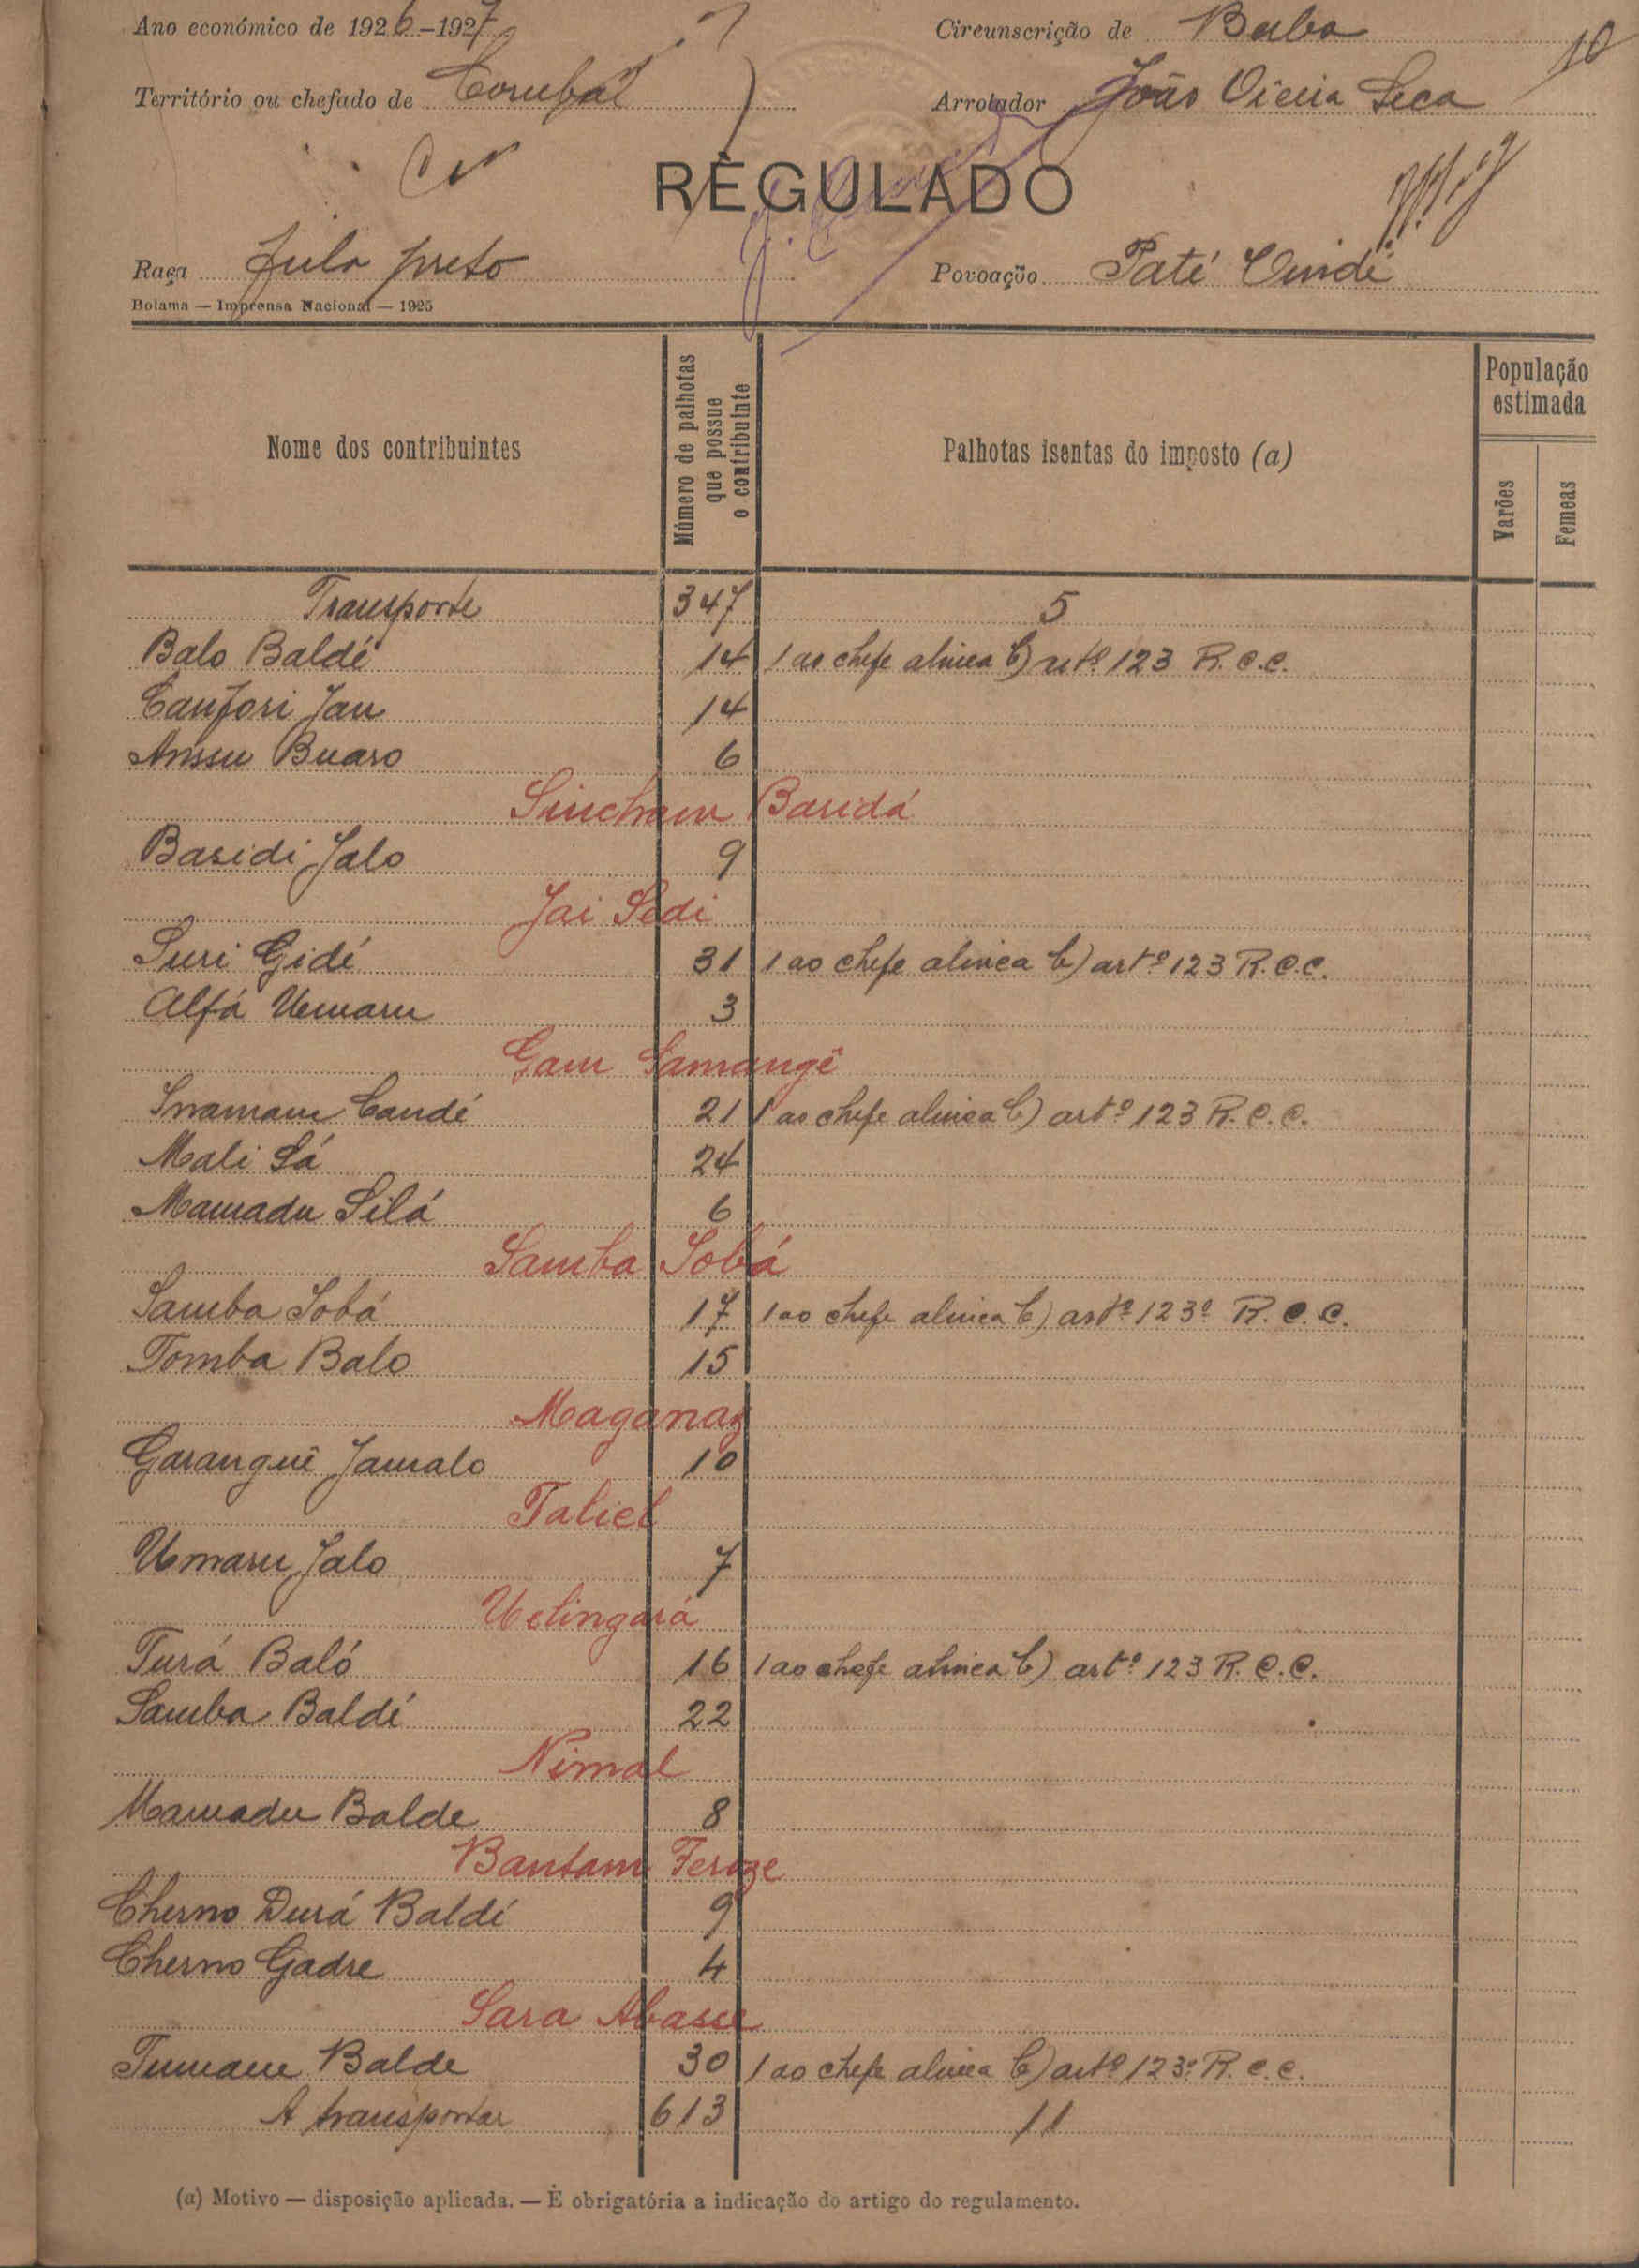 Ano económico de 1926-1927
Circunscrição de Buba
10
Território ou chefado de Corubal
Arrolador João Vieira Seca
REGULADO
Raça Fula preto
Povoação Paté
Bolama — Imprensa Nacional — 1925
Nome dos contribuintes
Número de palhotas que possue o contribuinte
Palhotas isentas do imposto (a)
População estimada
Varões
Femeas
Transporte 347 5
Balo Baldé 14 1 ao chefe alinea b) artº 123 R.C.C.
Canjori Jau 14
Anssu Buaro 6
Sincham Baridá
Baridi Jalo 9
Jai Sedi
Suri Gidé 31 1 ao chefe alinea b) artº 123 R.C.C.
Alfá Uemaru 3
Gam Samangê
Inamam Candé 21 1 ao chefe alinea b) artº 123 R.C.C.
Mali Sá 24
Mamadu Silá 6
Samba Sobá
Samba Sobá 17 1 ao chefe alinea b) artº 123º R.C.C.
Tomba Balo 15
Maganaz
Garanguê Jamalo 10
Taliel
Umaru Jalo 7
Uelingará
Turá Baló 16 1 ao chefe alinea b) artº 123 R.C.C.
Samba Baldé 22
Nimal
Mamadu Balde 8
Bantam Feroze
Cherno Durá Baldé 9
Cherno Gadre 4
Sara Abasse
Tumane Balde 30 1 ao chefe alinea b) artº 123º R.C.C.
A transportar 613 11
(a) Motivo — disposição aplicada. — É obrigatória a indicação do artigo do regulamento.